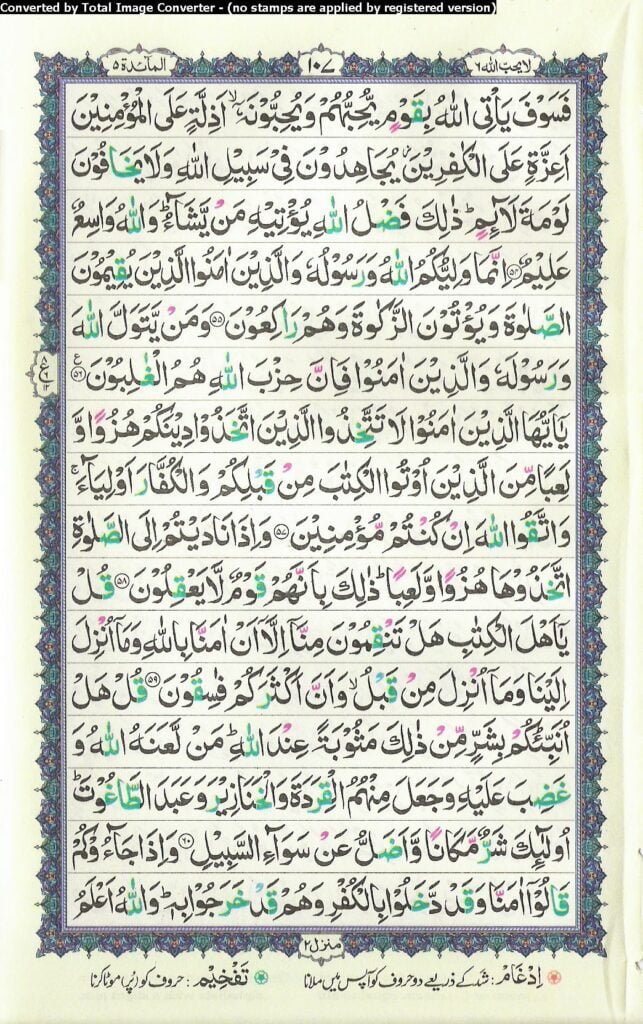 Converted by Total Image Converter - (no stamps are applied by registered version)
لایحب اللہ ۶
۱۰۷
المآئدۃ ۵
فَسَوْفَ یَاْتِی اللّٰهُ بِقَوْمٍ یُّحِبُّهُمْ وَیُحِبُّوْنَهٗۤ ۙ اَذِلَّةٍ عَلَی الْمُؤْمِنِیْنَ
اَعِزَّةٍ عَلَی الْكٰفِرِیْنَ ؗ یُجَاهِدُوْنَ فِیْ سَبِیْلِ اللّٰهِ وَلَا یَخَافُوْنَ
لَوْمَةَ لَآئِمٍ ؕ ذٰلِكَ فَضْلُ اللّٰهِ یُؤْتِیْهِ مَنْ یَّشَآءُ ؕ وَاللّٰهُ وَاسِعٌ
عَلِیْمٌ ﴿۵۴﴾ اِنَّمَا وَلِیُّكُمُ اللّٰهُ وَرَسُوْلُهٗ وَالَّذِیْنَ اٰمَنُوا الَّذِیْنَ یُقِیْمُوْنَ
الصَّلٰوةَ وَیُؤْتُوْنَ الزَّكٰوةَ وَهُمْ رٰكِعُوْنَ ﴿۵۵﴾ وَمَنْ یَّتَوَلَّ اللّٰهَ
وَرَسُوْلَهٗ وَالَّذِیْنَ اٰمَنُوْا فَاِنَّ حِزْبَ اللّٰهِ هُمُ الْغٰلِبُوْنَ ﴿۵۶﴾ ع
یٰۤاَیُّهَا الَّذِیْنَ اٰمَنُوْا لَا تَتَّخِذُوا الَّذِیْنَ اتَّخَذُوْا دِیْنَكُمْ هُزُوًا وَّ
لَعِبًا مِّنَ الَّذِیْنَ اُوْتُوا الْكِتٰبَ مِنْ قَبْلِكُمْ وَالْكُفَّارَ اَوْلِیَآءَ ۚ
وَاتَّقُوا اللّٰهَ اِنْ كُنْتُمْ مُّؤْمِنِیْنَ ﴿۵۷﴾ وَاِذَا نَادَیْتُمْ اِلَی الصَّلٰوةِ
اتَّخَذُوْهَا هُزُوًا وَّلَعِبًا ؕ ذٰلِكَ بِاَنَّهُمْ قَوْمٌ لَّا یَعْقِلُوْنَ ﴿۵۸﴾ قُلْ
یٰۤاَهْلَ الْكِتٰبِ هَلْ تَنْقِمُوْنَ مِنَّاۤ اِلَّاۤ اَنْ اٰمَنَّا بِاللّٰهِ وَمَاۤ اُنْزِلَ
اِلَیْنَا وَمَاۤ اُنْزِلَ مِنْ قَبْلُ ۙ وَاَنَّ اَكْثَرَكُمْ فٰسِقُوْنَ ﴿۵۹﴾ قُلْ هَلْ
اُنَبِّئُكُمْ بِشَرٍّ مِّنْ ذٰلِكَ مَثُوْبَةً عِنْدَ اللّٰهِ ؕ مَنْ لَّعَنَهُ اللّٰهُ وَ
غَضِبَ عَلَیْهِ وَجَعَلَ مِنْهُمُ الْقِرَدَةَ وَالْخَنَازِیْرَ وَعَبَدَ الطَّاغُوْتَ ؕ
اُولٰٓئِكَ شَرٌّ مَّكَانًا وَّاَضَلُّ عَنْ سَوَآءِ السَّبِیْلِ ﴿۶۰﴾ وَاِذَا جَآءُوْكُمْ
قَالُوْۤا اٰمَنَّا وَقَدْ دَّخَلُوْا بِالْكُفْرِ وَهُمْ قَدْ خَرَجُوْا بِهٖ ؕ وَاللّٰهُ اَعْلَمُ
منزل ۲
اِدْغَام: شد کے ذریعے دو حروف کو آپس میں ملانا تَفْخِیْم: حروف کو پُر/موٹا کرنا